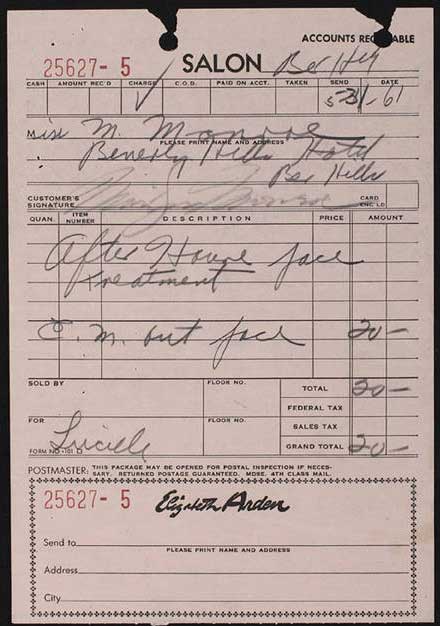 ACCOUNTS RECEIVABLE
25627-5 SALON Bev Hill
CASH AMOUNT REC'D CHARGE C.O.D. PAID ON ACCT. TAKEN SEND DATE
✓ 5-31-61
Miss M. Monroe
PLEASE PRINT NAME AND ADDRESS
Beverly Hills Hotel
Bev Hills
CUSTOMER'S SIGNATURE Marilyn Monroe CARD ENC'LD
QUAN. ITEM NUMBER DESCRIPTION PRICE AMOUNT
After House face
treatment
E. M. out face 20-
SOLD BY FLOOR NO. TOTAL 20-
FEDERAL TAX
FOR FLOOR NO. SALES TAX
Lucielle GRAND TOTAL 20-
FORM NO. -101
POSTMASTER: THIS PACKAGE MAY BE OPENED FOR POSTAL INSPECTION IF NECES-
SARY. RETURNED POSTAGE GUARANTEED. MDSE. 4TH CLASS MAIL.
25627-5 Elizabeth Arden
Send to
PLEASE PRINT NAME AND ADDRESS
Address
City